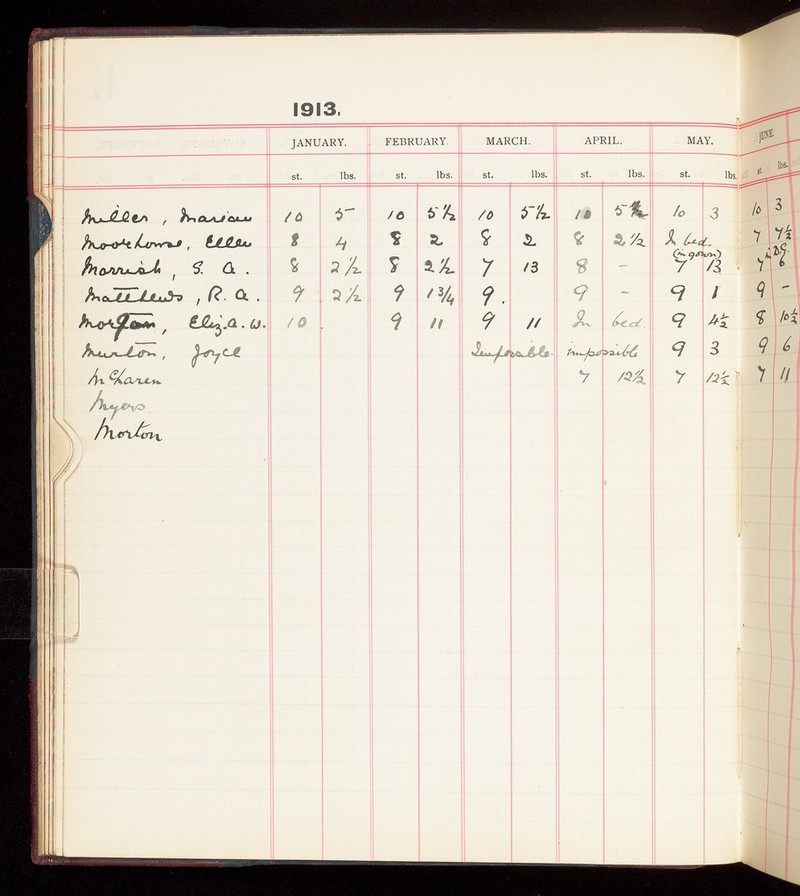 1913.
JANUARY. FEBRUARY. MARCH. APRIL. MAY. JUNE
st. lbs. st. lbs. st. lbs. st. lbs. st. lbs. st. lbs.
Miller, Marian 10 5 10 5 1/2 10 5 1/2 10 5 10 3 10 3
Moorhouse, Ellen 8 4 8 2 8 2 8 2 1/2 In bed. 7 7 1/2
(in gown) in D.G.
Marrish, S. A. 8 2 1/2 8 2 1/2 7 13 8 – 7 13 7 6
Matthews, R. A. 9 2 1/2 9 1 3/4 9. 9 – 9 1 9 –
Morgan, Eliz. A. W. 10. 9 11 9 11 In bed. 9 4 1/2 8 10 1/2
Murton, Joyce Impossible impossible 9 3 9 6
McLaren 7 12 1/2 7 12 1/2 7 11
Myers
Morton